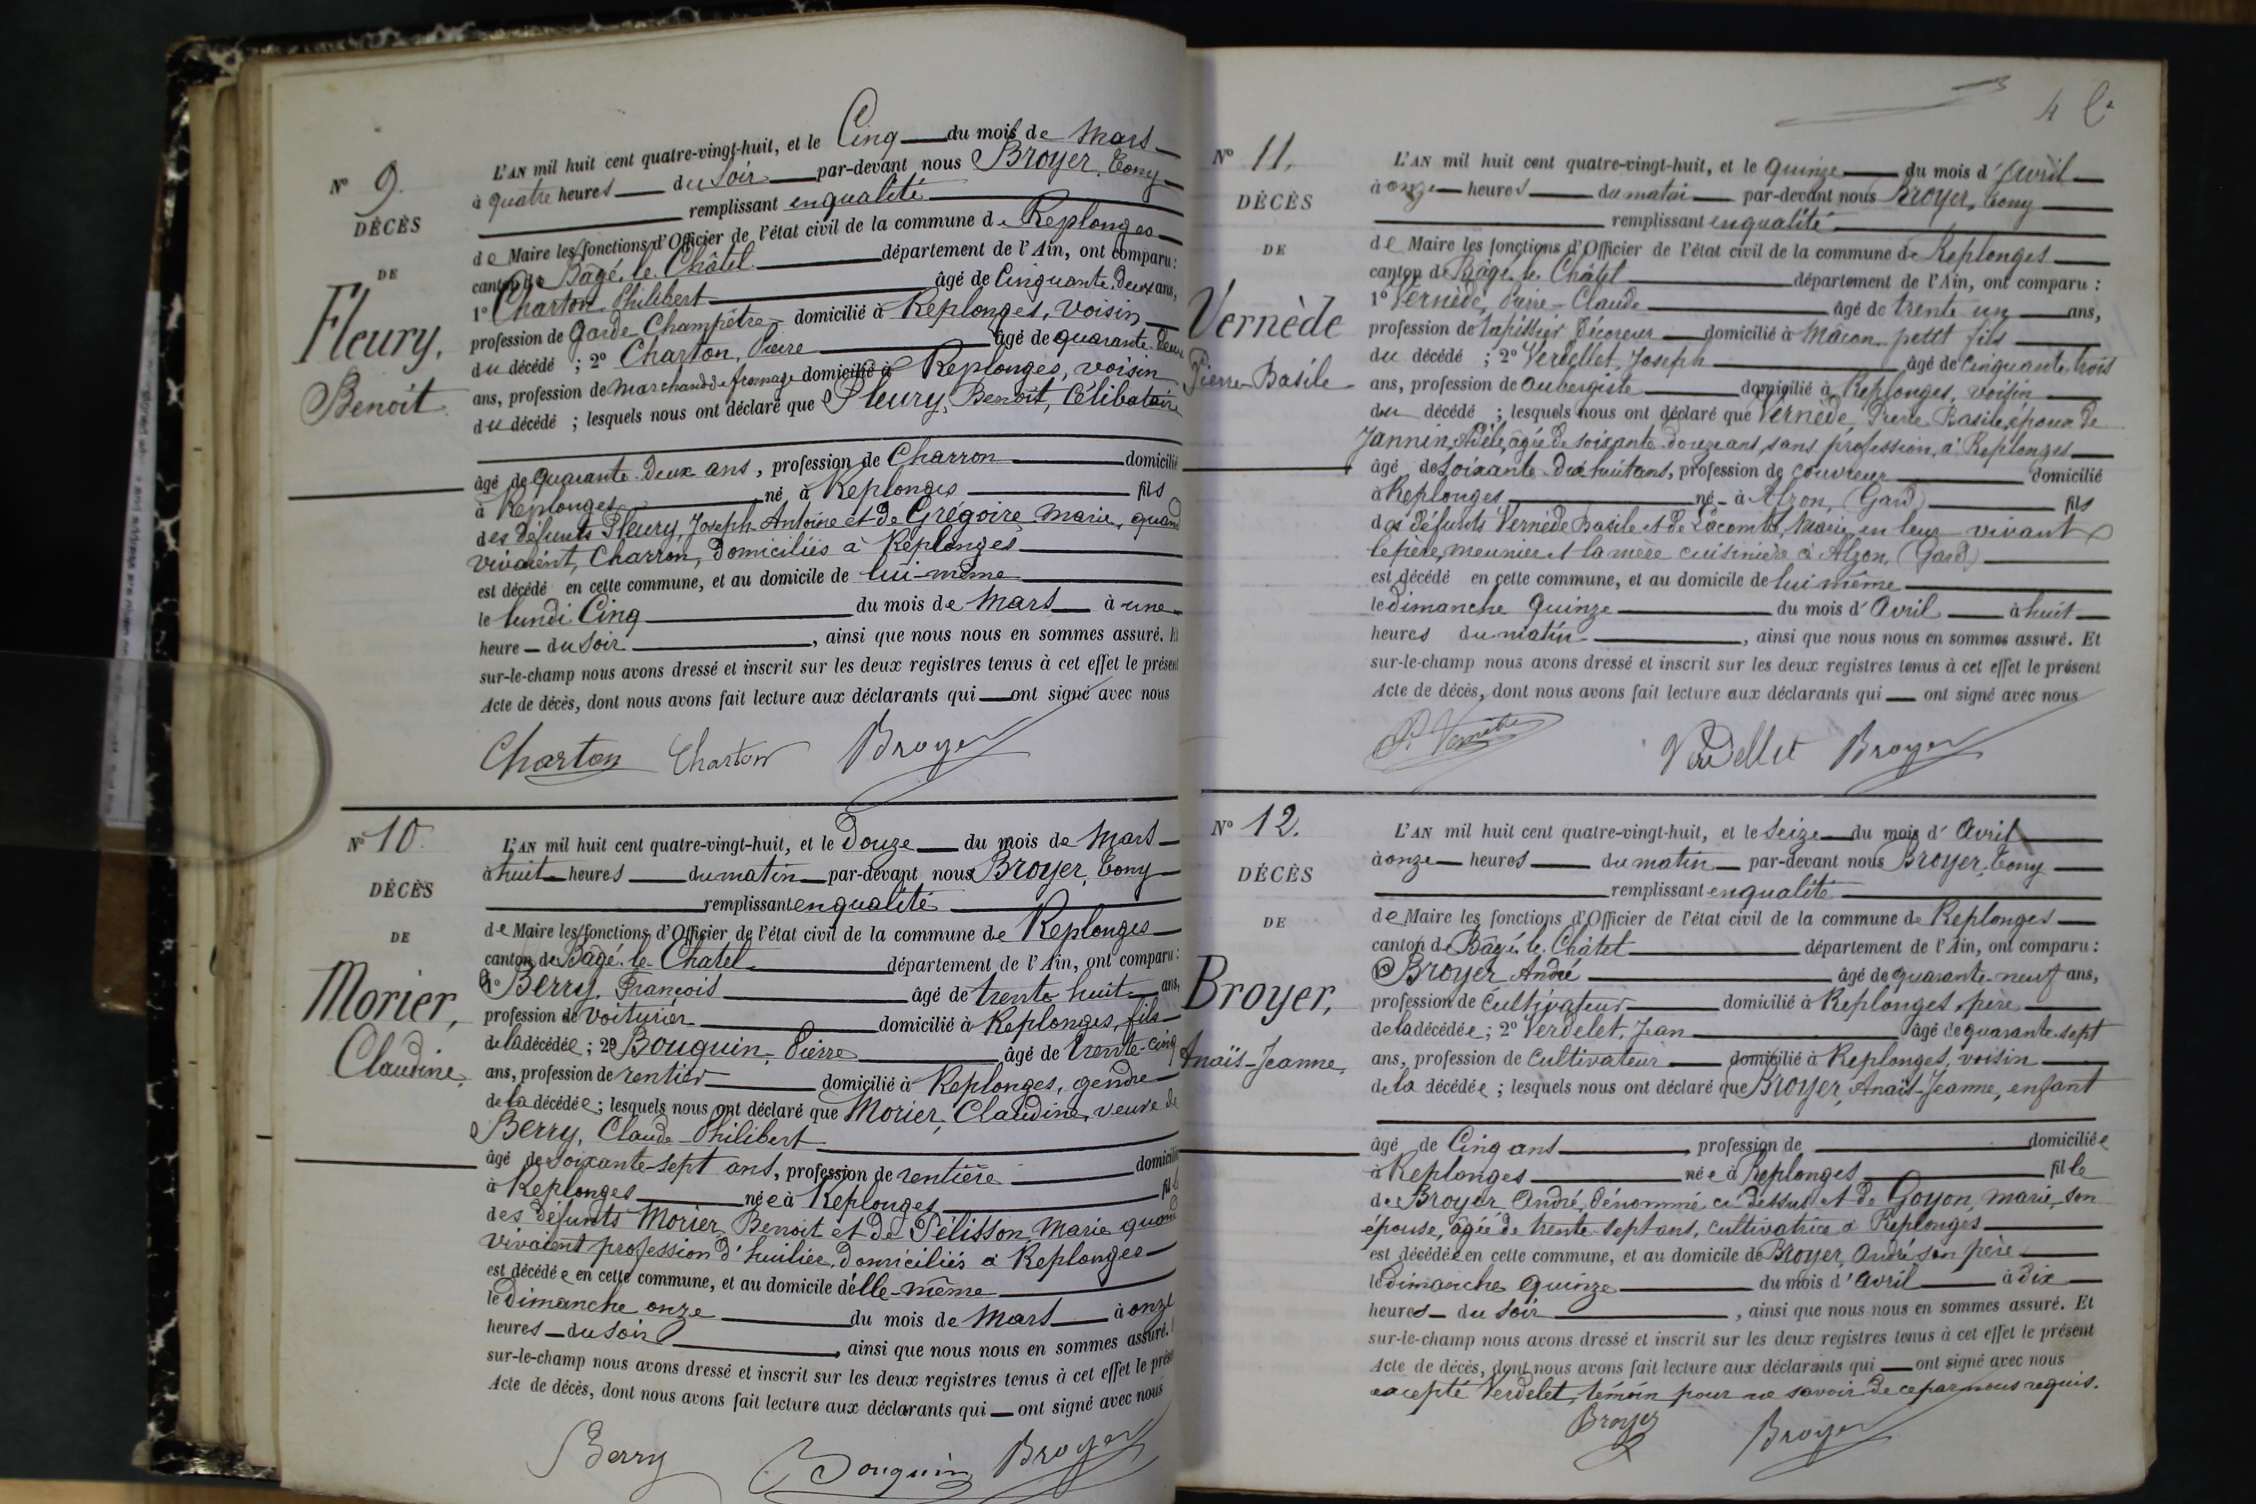 N° 9.
DÉCÈS
DE
Fleury,
Benoit
L'AN mil huit cent quatre-vingt-huit, et le Cinq du mois de Mars
à quatre heures du soir par-devant nous Broyer, Tony
remplissant en qualité
de Maire les fonctions d'Officier de l'état civil de la commune de Replonges
canton de Bâgé-le-Châtel département de l'Ain, ont comparu :
1° Charton Philibert âgé de Cinquante-deux ans,
profession de Garde Champêtre domicilié à Replonges, voisin
du décédé ; 2° Charton, Pierre âgé de quarante-deux
ans, profession de marchand de fromage domicilié à Replonges, voisin
du décédé ; lesquels nous ont déclaré que Fleury, Benoît, Célibataire
âgé de quarante-deux ans, profession de Charron domicilié
à Replonges né à Replonges fils
des défunts Fleury, Joseph-Antoine et de Grégoire Marie, quand
vivaient, Charron, domiciliés à Replonges
est décédé en cette commune, et au domicile de lui-même
le lundi Cinq du mois de Mars à une
heure du soir, ainsi que nous nous en sommes assuré. Et
sur-le-champ nous avons dressé et inscrit sur les deux registres tenus à cet effet le présent
Acte de décès, dont nous avons fait lecture aux déclarants qui ont signé avec nous
Charton Charton Broyer
N° 10.
DÉCÈS
DE
Morier,
Claudine,
L'AN mil huit cent quatre-vingt-huit, et le Douze du mois de Mars
à huit heures du matin par-devant nous Broyer, Tony
remplissant en qualité
de Maire les fonctions d'Officier de l'état civil de la commune de Replonges
canton de Bâgé-le-Chatel département de l'Ain, ont comparu :
1° Berry, François âgé de trente-huit ans,
profession de voiturier domicilié à Replonges, fils
de la décédée ; 2° Bouquin, Pierre âgé de trente-cinq
ans, profession de rentier domicilié à Replonges, gendre
de la décédée ; lesquels nous ont déclaré que Morier, Claudine, veuve de
Berry, Claude-Philibert
âgé de soixante-sept ans, profession de rentière domicilié
à Replonges née à Replonges fille
des défunts Morier, Benoit et de Pélisson, Marie quand
vivaient profession d'huilier, domiciliés à Replonges
est décédée en cette commune, et au domicile d'elle-même
le dimanche onze du mois de Mars à onze
heures du soir, ainsi que nous nous en sommes assuré.
sur-le-champ nous avons dressé et inscrit sur les deux registres tenus à cet effet le présent
Acte de décès, dont nous avons fait lecture aux déclarants qui ont signé avec nous
Berry Bouquin Broyer
4
N° 11.
DÉCÈS
DE
Vernède
Pierre-Basile
L'AN mil huit cent quatre-vingt-huit, et le quinze du mois d'Avril
à onze heures du matin par-devant nous Broyer, Tony
remplissant en qualité
de Maire les fonctions d'Officier de l'état civil de la commune de Replonges
canton de Bâgé-le-Châtel département de l'Ain, ont comparu :
1° Vernède, Pierre-Claude âgé de trente un ans,
profession de tapissier décoreur domicilié à Mâcon petit fils
du décédé ; 2° Verdellet, Joseph âgé de cinquante-trois
ans, profession de aubergiste domicilié à Replonges, voisin
du décédé ; lesquels nous ont déclaré que Vernède Pierre Basile, époux de
Jannin, Adèle, âgée de soixante-douze ans, sans profession, à Replonges
âgé de soixante-dix huit ans, profession de couvreur domicilié
à Replonges né à Alzon, (Gard) fils
des défunts Vernède Basile et de Lacombe, Marie, en leur vivant
le père, meunier et la mère cuisinière à Alzon, (Gard)
est décédé en cette commune, et au domicile de lui même
le dimanche quinze du mois d'Avril à huit
heures du matin, ainsi que nous nous en sommes assuré. Et
sur-le-champ nous avons dressé et inscrit sur les deux registres tenus à cet effet le présent
Acte de décès, dont nous avons fait lecture aux déclarants qui ont signé avec nous
P. Vernède Verdellet Broyer
N° 12.
DÉCÈS
DE
Broyer,
Anaïs-Jeanne,
L'AN mil huit cent quatre-vingt-huit, et le seize du mois d'Avril
à onze heures du matin par-devant nous Broyer, Tony
remplissant en qualité
de Maire les fonctions d'Officier de l'état civil de la commune de Replonges
canton de Bâgé-le-Châtel département de l'Ain, ont comparu :
1° Broyer André âgé de quarante-neuf ans,
profession de Cultivateur domicilié à Replonges, père
de la décédée ; 2° Verdelet, Jean âgé de quarante-sept
ans, profession de cultivateur domicilié à Replonges, voisin
de la décédée ; lesquels nous ont déclaré que Broyer, Anaïs-Jeanne, enfant
âgé de Cinq ans, profession de domiciliée
à Replonges née à Replonges fille
de Broyer André, dénommé ci-dessus et de Goyon, Marie, son
épouse, âgée de trente-sept ans, cultivatrice à Replonges
est décédée en cette commune, et au domicile de Broyer, André son père
le dimanche quinze du mois d'Avril à dix
heures du soir, ainsi que nous nous en sommes assuré. Et
sur-le-champ nous avons dressé et inscrit sur les deux registres tenus à cet effet le présent
Acte de décès, dont nous avons fait lecture aux déclarants qui ont signé avec nous
excepté Verdelet, témoin pour ne savoir de ce par nous requis.
Broyer Broyer